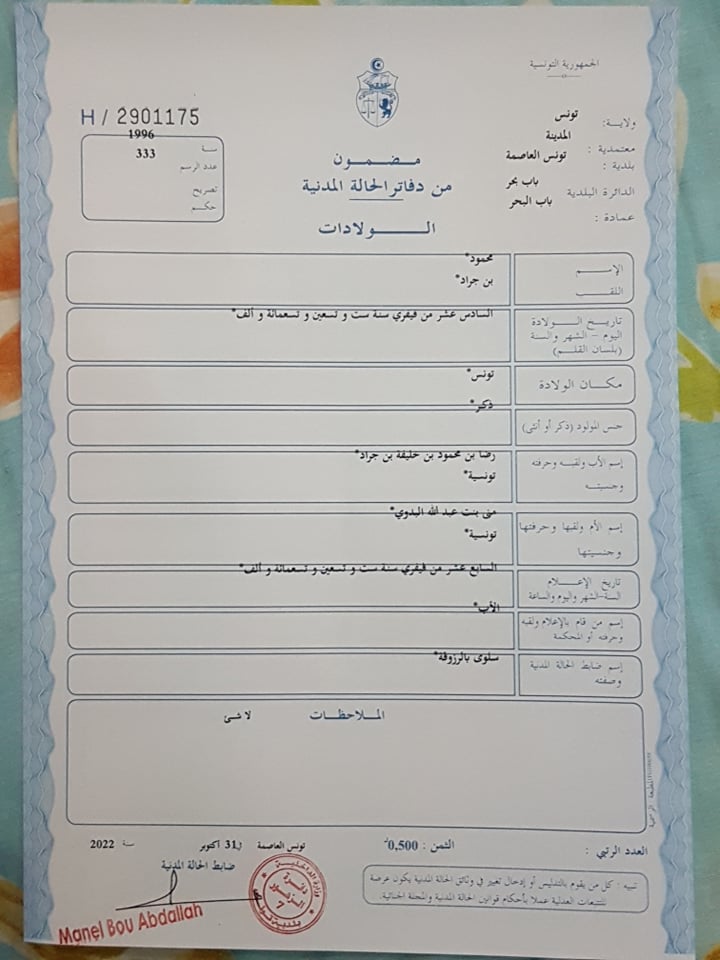 الجمهورية التونسية
H / 2901175
سنة 1996
عدد الرسم 333
تصريح
حكم
مضمون
من دفاتر الحالة المدنية
الولادات
ولاية: تونس
معتمدية : المدينة
بلدية : تونس العاصمة
الدائرة البلدية باب بحر
عمادة : باب البحر
الإسم محمود*
اللقب بن جراد*
تاريخ الولادة السادس عشر من فيفري سنة ست و تسعين و تسعمائة و ألف*
اليوم - الشهر والسنة
(بلسان القلم)
مكان الولادة تونس*
جنس المولود (ذكر أو أنثى) ذكر*
إسم الأب ولقبه وحرفته رضا بن محمود بن خليفة بن جراد*
وجنسيته تونسية*
إسم الأم ولقبها وحرفتها منى بنت عبد الله البدوي*
وجنسيتها تونسية*
تاريخ الإعلام السابع عشر من فيفري سنة ست و تسعين و تسعمائة و ألف*
السنة-الشهر واليوم والساعة
إسم من قام بالإعلام ولقبه الأب*
وحرفته أو المحكمة
إسم ضابط الحالة المدنية سلوى بالرزوقة*
وصفته
الملاحظات
لا شئ
العدد الرتبي :
الثمن : 0,500
تونس العاصمة في 31 أكتوبر سنة 2022
ضابط الحالة المدنية
تنبيه : كل من يقوم بالتدليس أو إدخال تغيير في وثائق الحالة المدنية يكون عرضة
للتتبعات العدلية عملا بأحكام قوانين الحالة المدنية والمجلة الجنائية.
Manel Bou Abdallah